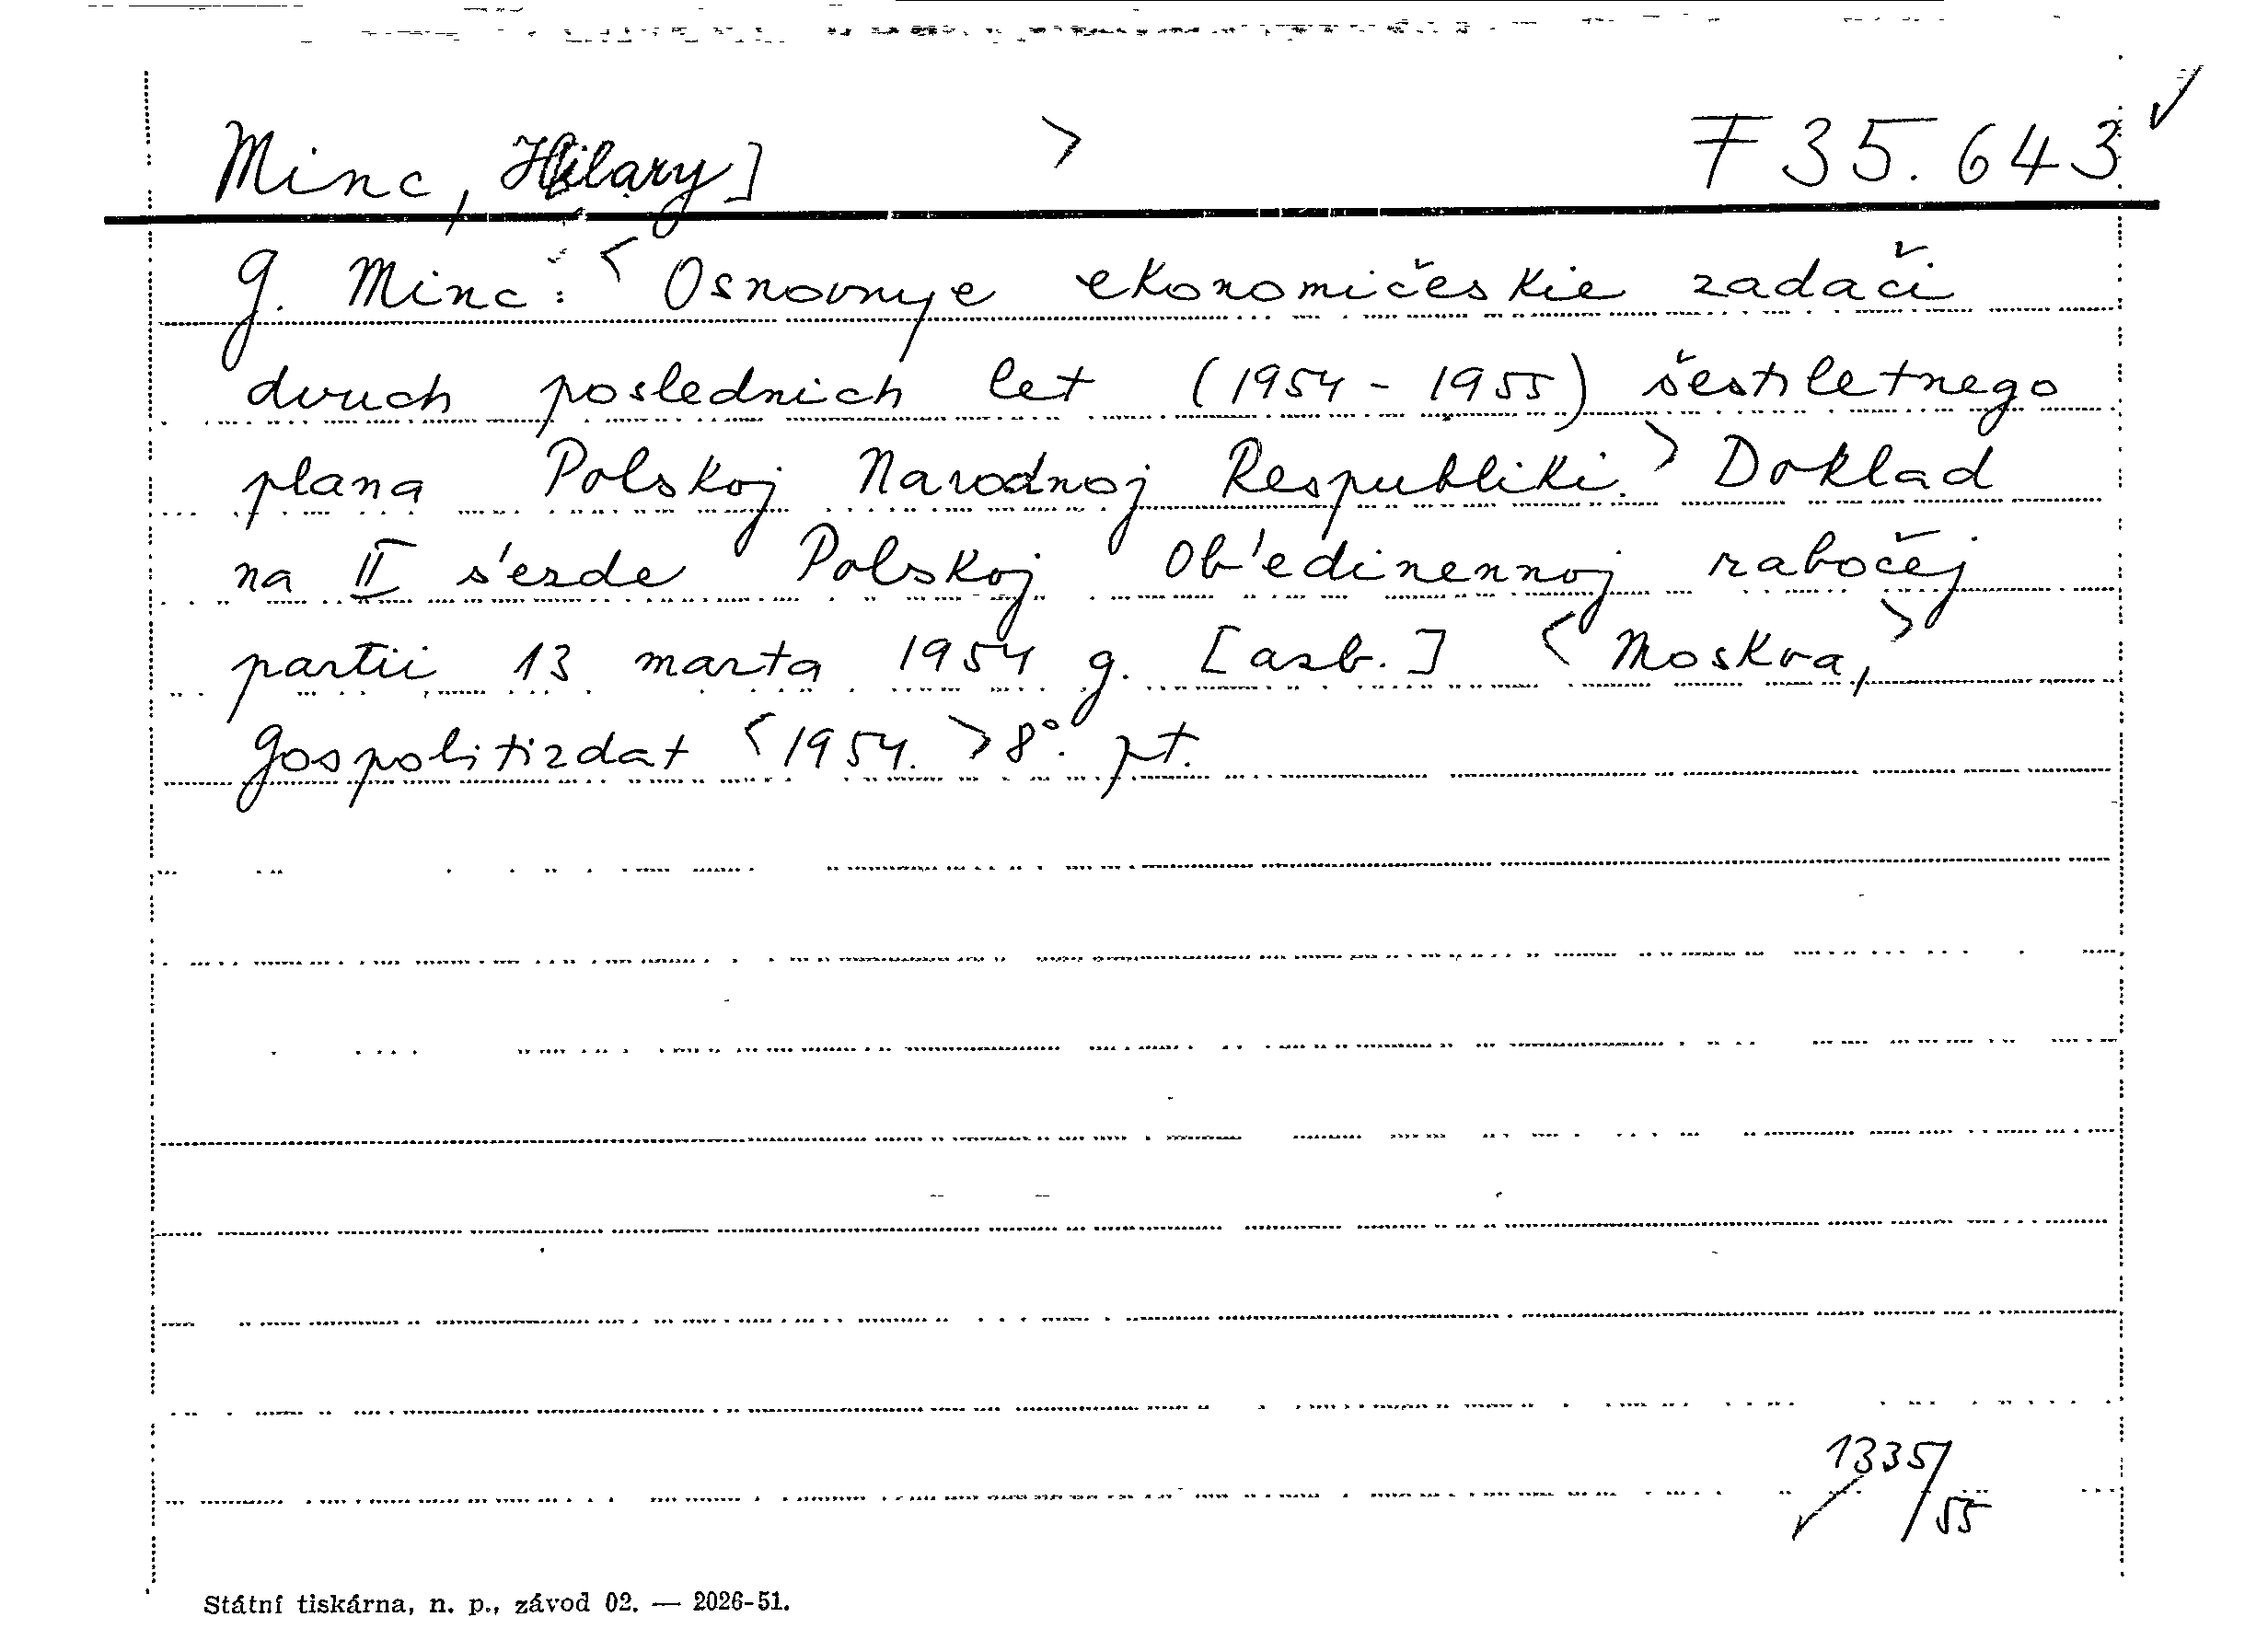 Minc, Hilary] > F 35.643 ✓
G. Minc: < Osnovnye ekonomičeskie zadači
dvuch poslednich let (1954 - 1955) šestiletnego
plana Polskoj Narodnoj Respubliki. > Doklad
na II s'ezde Polskoj Ob'edinennoj rabočej
partii 13 marta 1954 g. [azb.] < Moskva, >
Gospolitizdat < 1954. > 8°. pt.
1335/55
Státní tiskárna, n. p., závod 02. — 2026-51.